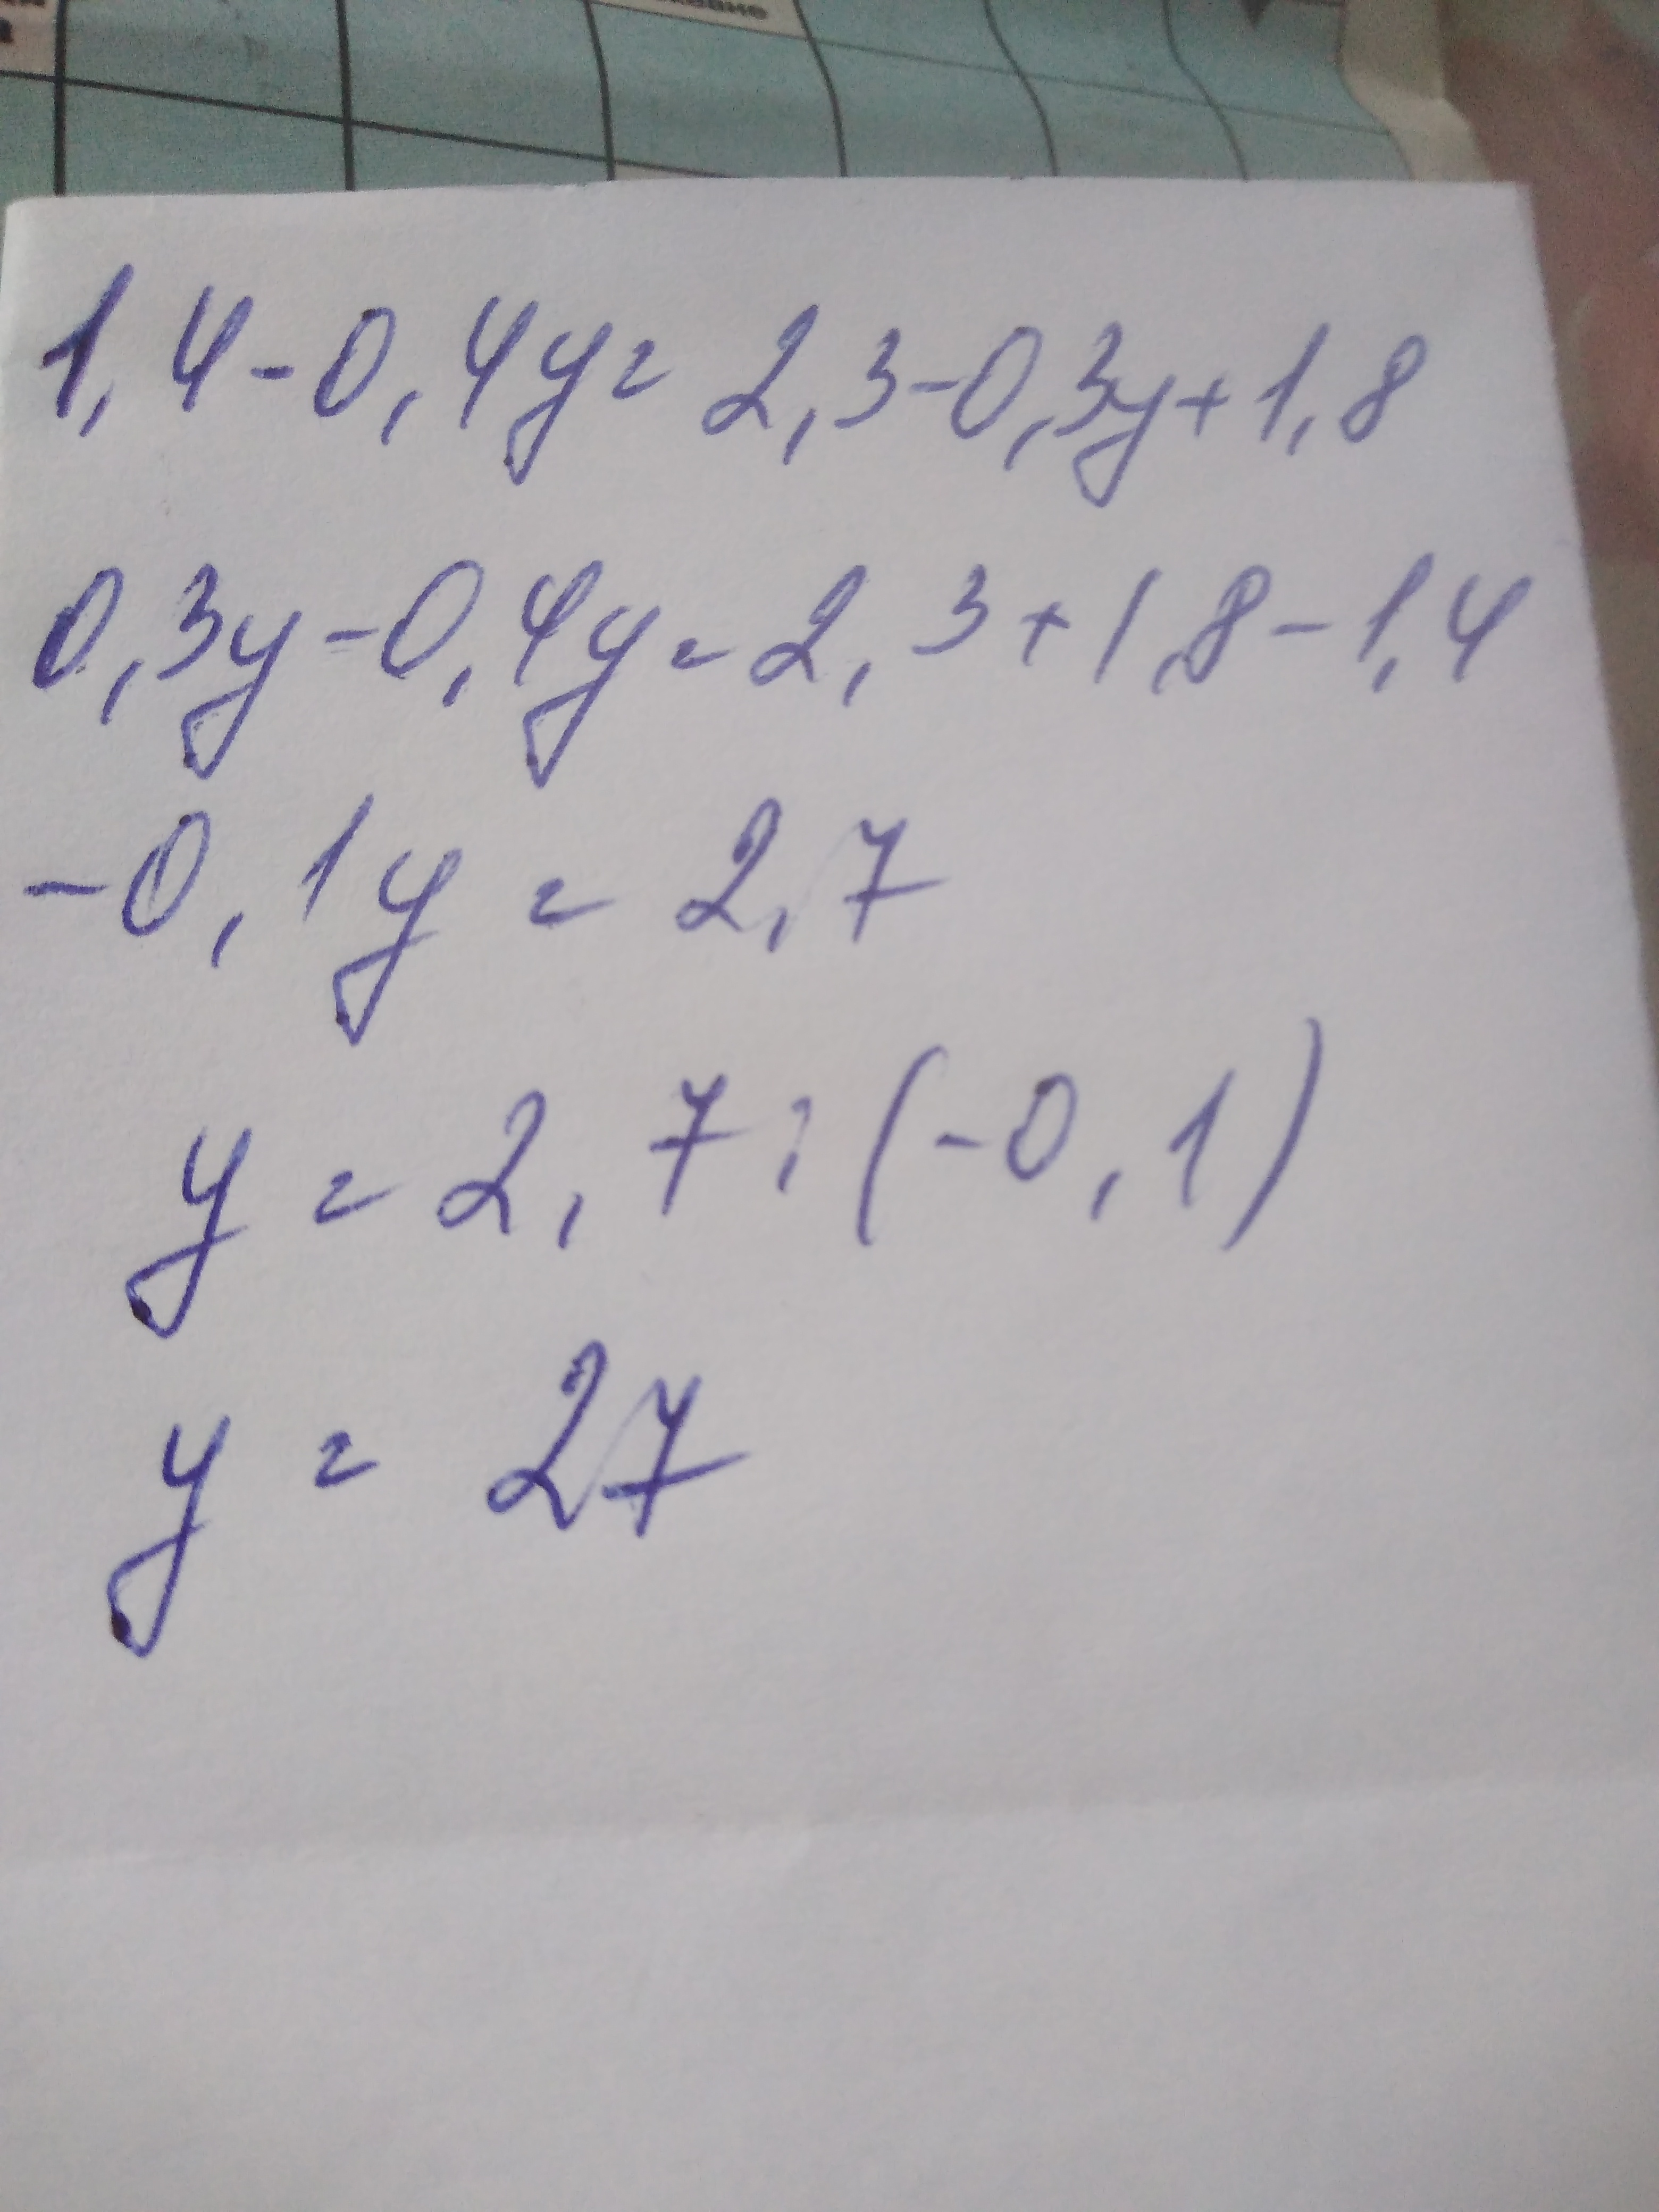 1,4-0,4y=2,3-0,3y+1,8
0,3y-0,4y=2,3+1,8-1,4
-0,1y=2,7
y=2,7:(-0,1)
y=27